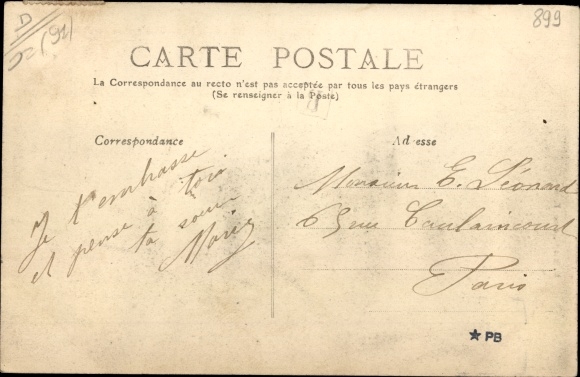 899
(91)
CARTE POSTALE
La Correspondance au recto n'est pas acceptée par tous les pays étrangers
(Se renseigner à la Poste)
Correspondance
Je t'embrasse
et pense à toi.
ta soeur
Marie
Adresse
Monsieur E. Léonard
65 rue Caulaincourt
Paris
★ PB